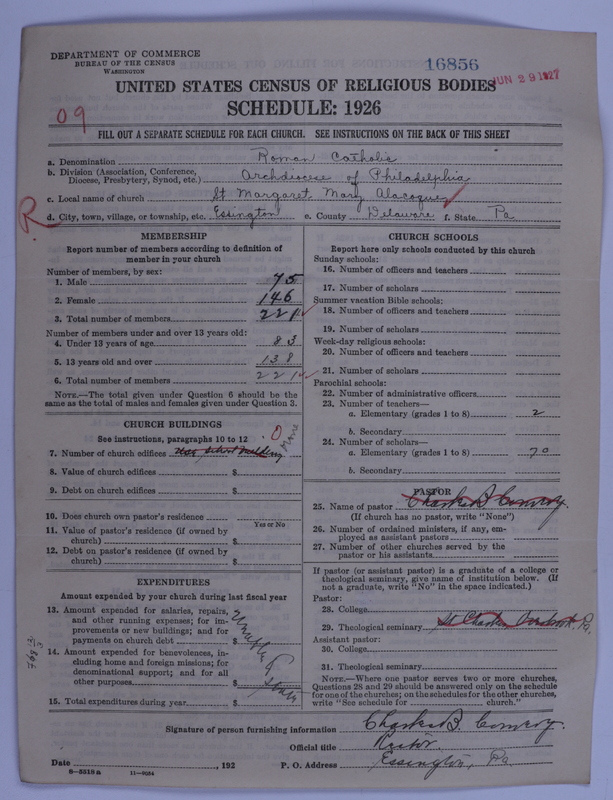 DEPARTMENT OF COMMERCE
BUREAU OF THE CENSUS
WASHINGTON
16856
JUN 29 1927
UNITED STATES CENSUS OF RELIGIOUS BODIES
SCHEDULE: 1926
09
FILL OUT A SEPARATE SCHEDULE FOR EACH CHURCH. SEE INSTRUCTIONS ON THE BACK OF THIS SHEET
a. Denomination Roman Catholic
b. Division (Association, Conference, Diocese, Presbytery, Synod, etc.) Archdiocese of Philadelphia
c. Local name of church St Margaret Mary Alacoque
R d. City, town, village, or township, etc. Essington e. County Delaware f. State Pa
MEMBERSHIP
Report number of members according to definition of
member in your church
Number of members, by sex:
1. Male 75
2. Female 146
3. Total number of members 221
Number of members under and over 13 years old:
4. Under 13 years of age 83
5. 13 years old and over 138
6. Total number of members 221
NOTE.—The total given under Question 6 should be the
same as the total of males and females given under Question 3.
CHURCH BUILDINGS
See instructions, paragraphs 10 to 12
7. Number of church edifices School Building 0 None
8. Value of church edifices $
9. Debt on church edifices $
10. Does church own pastor's residence
Yes or No
11. Value of pastor's residence (if owned by
church) $
12. Debt on pastor's residence (if owned by
church) $
EXPENDITURES
Amount expended by your church during last fiscal year
13. Amount expended for salaries, repairs,
and other running expenses; for im-
provements or new buildings; and for
payments on church debt $
14. Amount expended for benevolences, in-
cluding home and foreign missions; for
denominational support; and for all
other purposes $
15. Total expenditures during year $
unable to state
CHURCH SCHOOLS
Report here only schools conducted by this church
Sunday schools:
16. Number of officers and teachers
17. Number of scholars
Summer vacation Bible schools:
18. Number of officers and teachers
19. Number of scholars
Week-day religious schools:
20. Number of officers and teachers
21. Number of scholars
Parochial schools:
22. Number of administrative officers
23. Number of teachers—
a. Elementary (grades 1 to 8) 2
b. Secondary
24. Number of scholars—
a. Elementary (grades 1 to 8) 70
b. Secondary
PASTOR
25. Name of pastor Charles B. Conroy.
(If church has no pastor, write "None")
26. Number of ordained ministers, if any, em-
ployed as assistant pastors
27. Number of other churches served by the
pastor or his assistants
If pastor (or assistant pastor) is a graduate of a college or
theological seminary, give name of institution below. (If
not a graduate, write "No" in the space indicated.)
Pastor:
28. College
29. Theological seminary St Charles Overbrook Pa.
Assistant pastor:
30. College
31. Theological seminary
NOTE.—Where one pastor serves two or more churches,
Questions 28 and 29 should be answered only on the schedule
for one of the churches; on the schedules for the other churches,
write "See schedule for church."
Signature of person furnishing information Charles B. Conroy.
Official title Rector.
Date , 192 P. O. Address Essington, Pa
8—5318a 11—9054